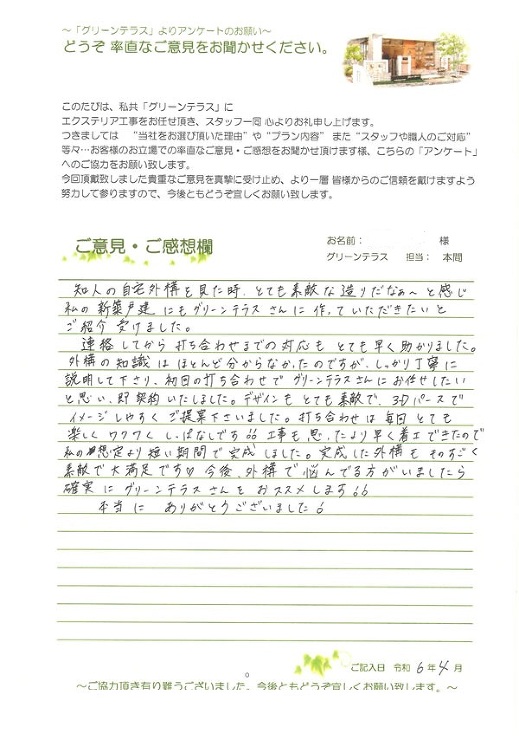 ～「グリーンテラス」よりアンケートのお願い～
どうぞ 率直なご意見をお聞かせください。
このたびは、私共「グリーンテラス」に
エクステリア工事をお任せ頂き、スタッフ一同 心よりお礼申し上げます。
つきましては “当社をお選び頂いた理由”や“プラン内容” また“スタッフや職人のご対応”
等々…お客様のお立場での率直なご意見・ご感想をお聞かせ頂けます様、こちらの「アンケート」
へのご協力をお願い致します。
今回頂戴致しました貴重なご意見を真摯に受け止め、より一層 皆様からのご信頼を戴けますよう
努力して参りますので、今後ともどうぞ宜しくお願い致します。
ご意見・ご感想欄
お名前： 様
グリーンテラス 担当： 本間
知人の自宅外構を見た時、とても素敵な造りだなぁ～と感じ
私の新築戸建にもグリーンテラスさんに作っていただきたいと
ご紹介受けました。
連絡してから打ち合わせまでの対応もとても早く助かりました。
外構の知識はほとんど分からなかったのですが、しっかり丁寧に
説明して下さり、初回の打ち合わせでグリーンテラスさんにお任せしたい
と思い、即契約いたしました。デザインもとても素敵で、3Dパースで
イメージしやすくご提案下さいました。打ち合わせは毎回とても
楽しくワクワクしっぱなしです!! 工事も思ったより早く着工できたので
私の想定より短い期間で完成しました。完成した外構もものすごく
素敵で大満足です♡ 今後、外構で悩んでる方がいましたら
確実にグリーンテラスさんをおススメします!!
本当に ありがとうございました!
ご記入日 令和 6年4月
～ご協力頂き有り難うございました。今後ともどうぞ宜しくお願い致します。～